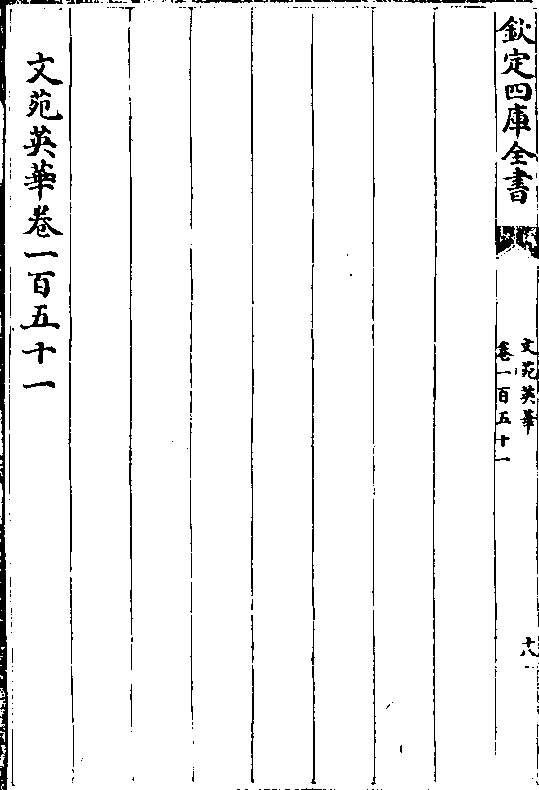 欽定四庫全書
文苑英華
卷一百五十一
十八
文苑英華卷一百五十一